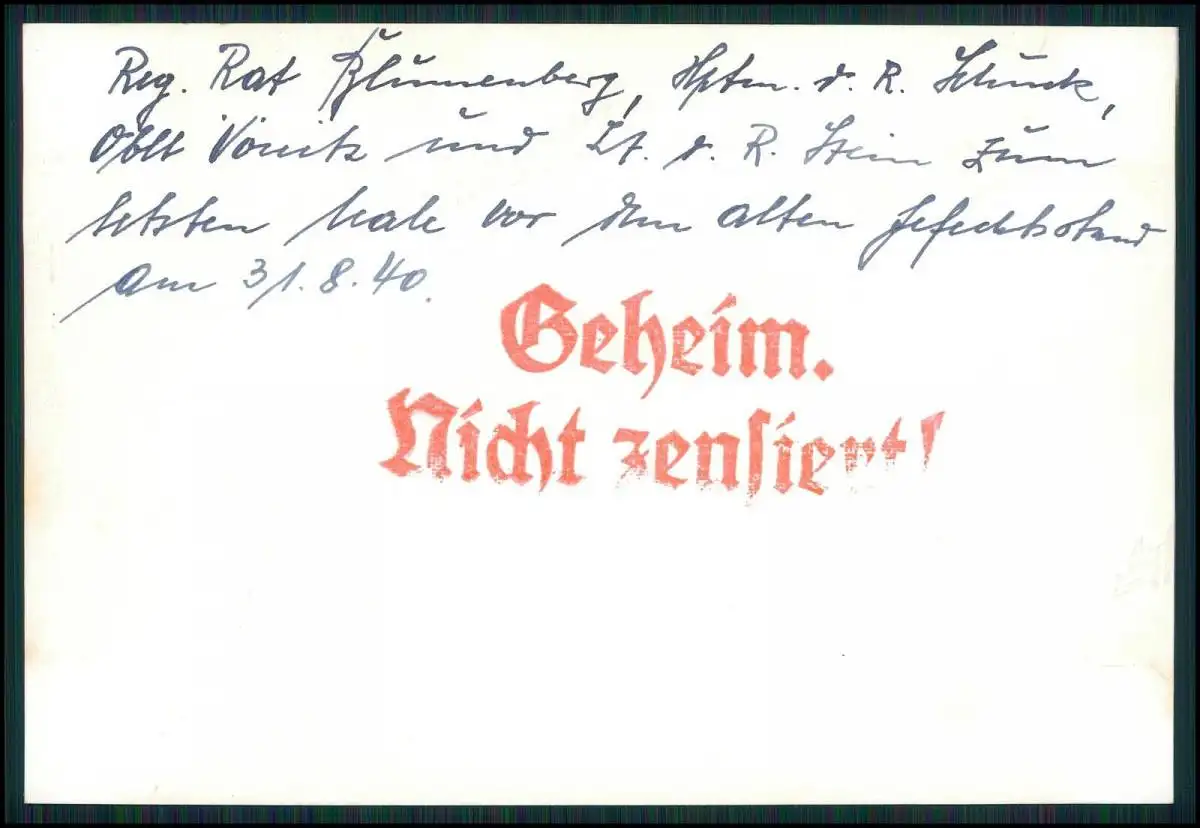 Reg. Rat Blumenberg, Hptm. d. R. Schuck,
Oblt und Lt. d. R. Stein zum
letzten Male vor dem alten Gefechtsstand
am 31.8.40.
Geheim.
Nicht zensiert!